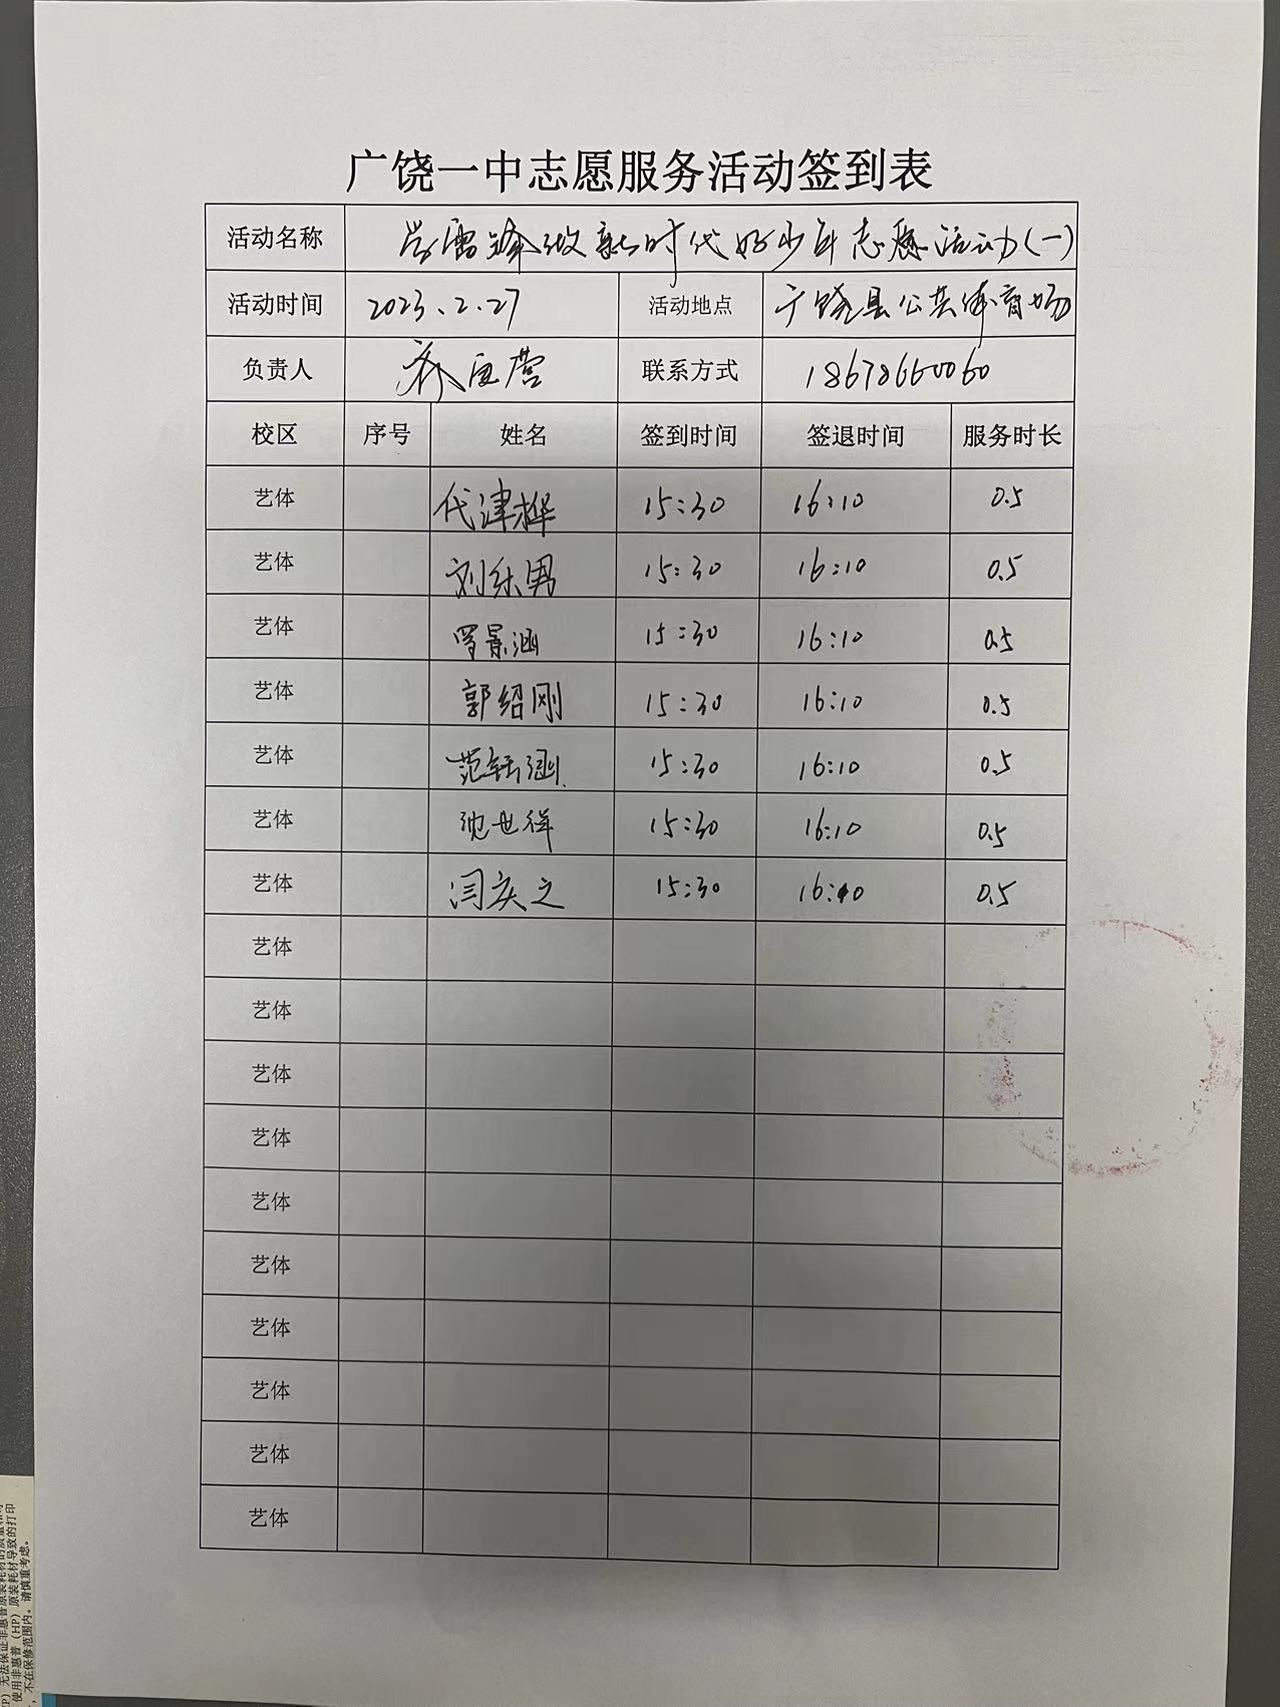 广饶一中志愿服务活动签到表
活动名称 学雷锋做新时代好少年志愿活动(一)
活动时间 2023.2.27 活动地点 广饶县公共体育场
负责人 联系方式 18678660060
校区 序号 姓名 签到时间 签退时间 服务时长
艺体 代津桦 15:30 16:10 0.5
艺体 刘乐男 15:30 16:10 0.5
艺体 罗景涵 15:30 16:10 0.5
艺体 郭绍刚 15:30 16:10 0.5
艺体 范钰涵 15:30 16:10 0.5
艺体 沈世祥 15:30 16:10 0.5
艺体 闫庆之 15:30 16:10 0.5
艺体
艺体
艺体
艺体
艺体
艺体
艺体
艺体
艺体
艺体
使用非惠普(HP)原装耗材导致的打印
不在保修范围内。请慎重考虑。